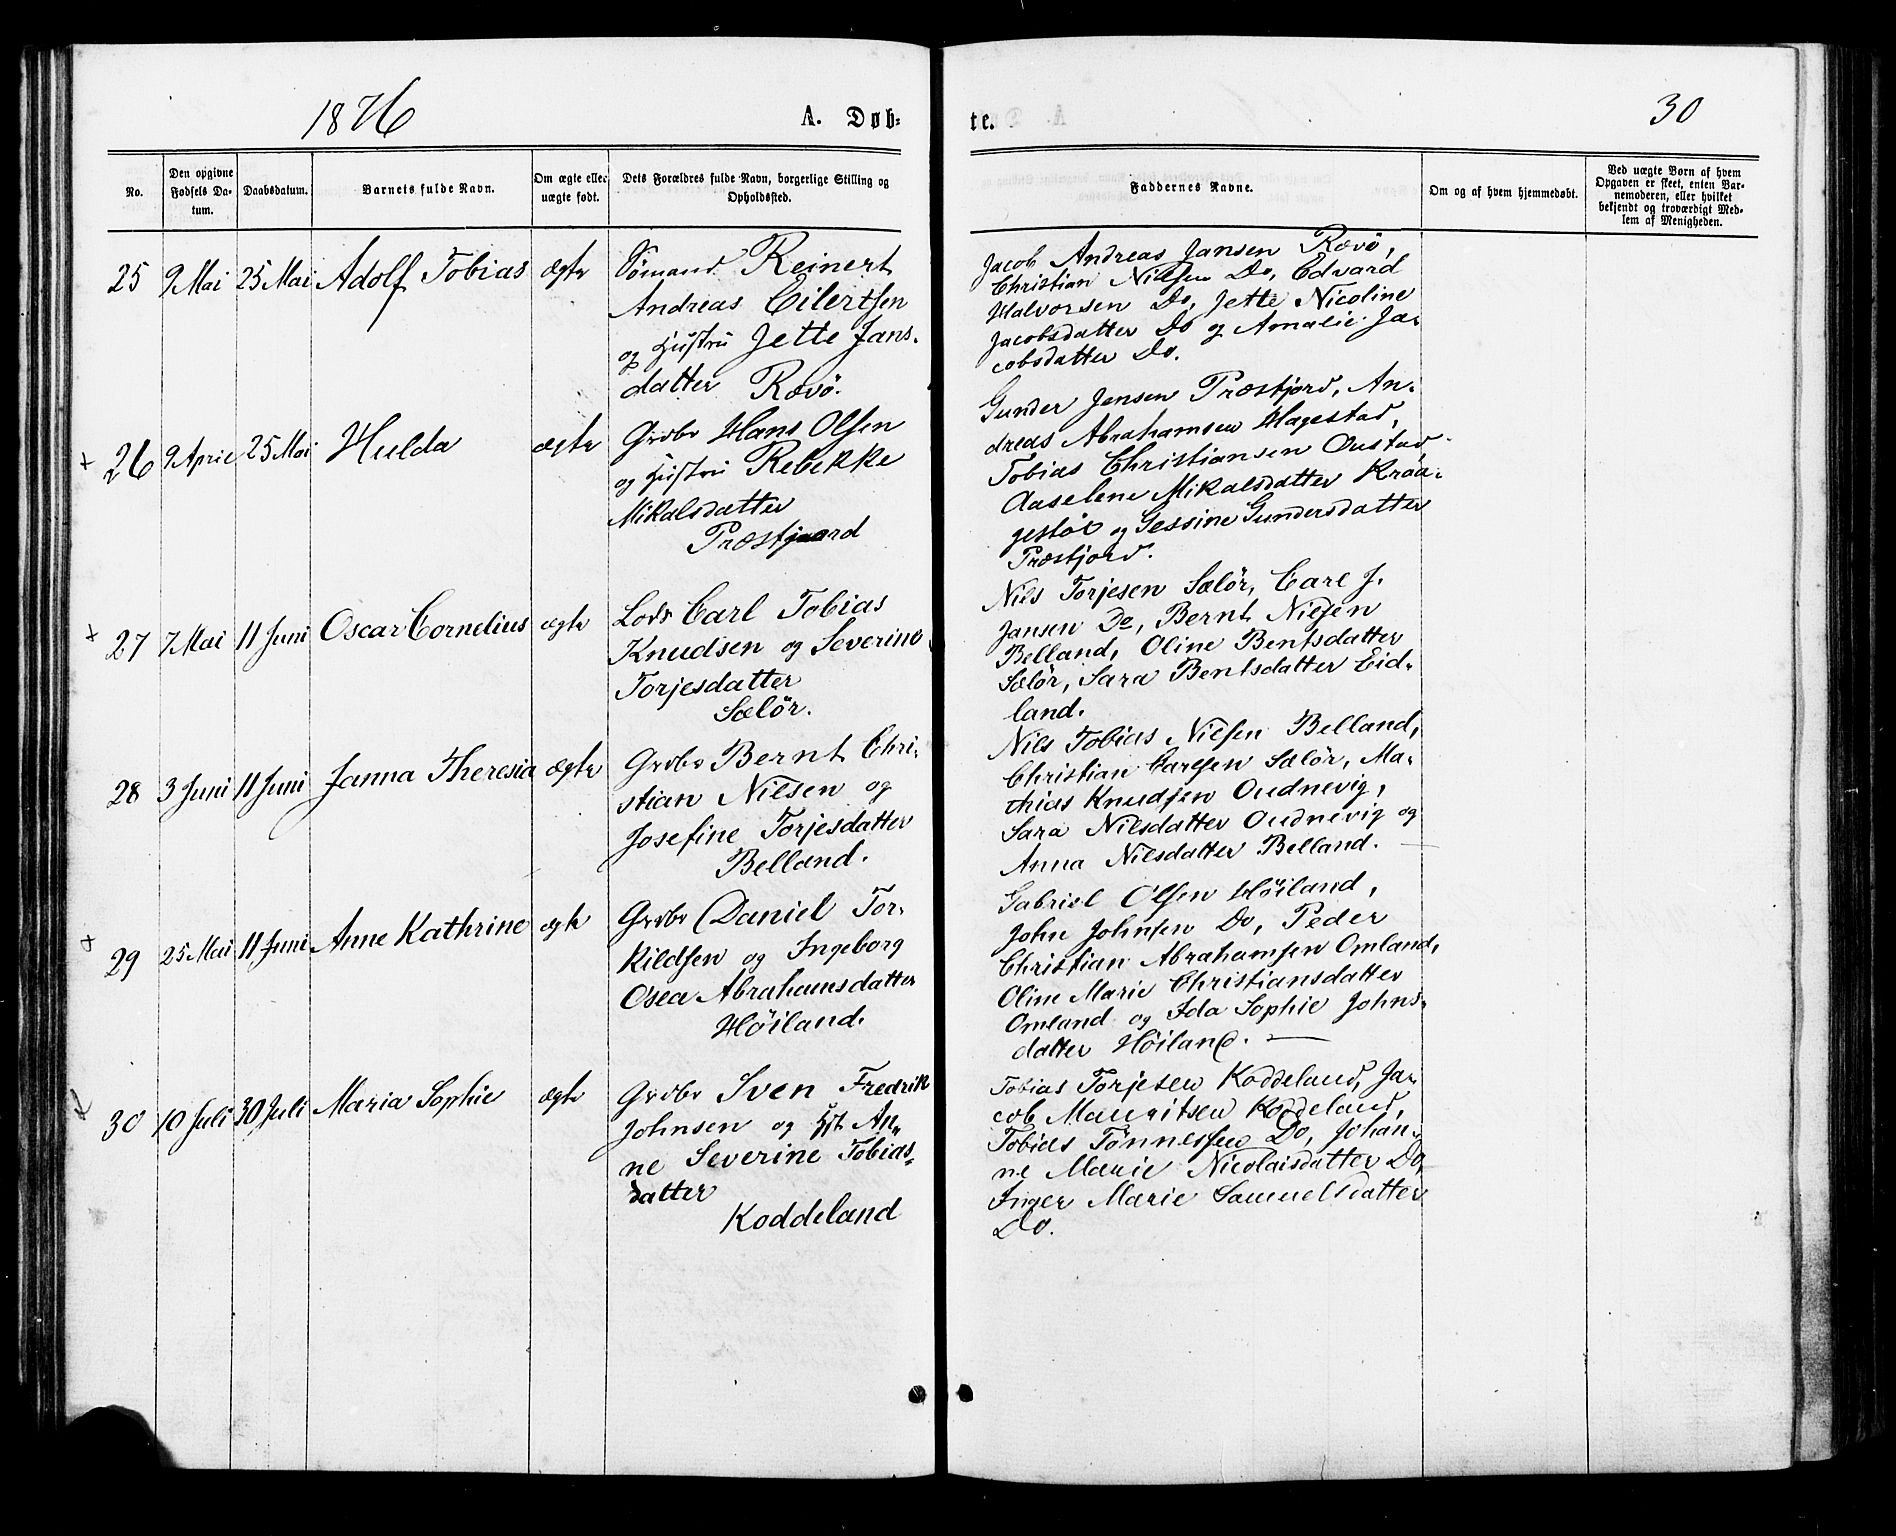 1876
A. Døb-
te.
30
No.
Den opgivne Fødsels Da-tum.
Daabsdatum.
Barnets fulde Navn.
Om ægte eller uægte født.
Dets Forældres fulde Navn, borgerlige Stilling og Opholdssted.
Faddernes Navne.
Om og af hvem hjemmedøbt.
Ved uægte Børn af hvem Opgaven er skeet, enten Bar-nemoderen, eller hvilket bekjendt og troværdigt Med-lem af Menigheden.
25 9 Mai 25 Mai Adolf Tobias ægte
Sömand Reinert
Andreas Eilertsen
og Hustru Jette Jans-
datter Rævö.
Jacob Andreas Jansen Rævö,
Christian Nielsen Do, Edvard
Halvorsen Do, Jette Nicoline
Jacobsdatter Do og Amalie Ja-
cobsdatter Do.
26 9 April 25 Mai Hulda ægte
Grdbr Hans Olsen
og Hustru Rebekke
Mikalsdatter
Præstjaard
Gunder Jensen Præstjord, An-
dreas Abrahamsen Hagestad,
Tobias Christiansen Oustad
Aaselene Mikalsdatter Kraa-
gestöl og Gessine Gundersdatter
Præstjord.
27 7 Mai 11 Juni Oscar Cornelius ægte
Lods Carl Tobias
Knudsen og Severine
Torjesdatter
Sælör.
Nils Torjesen Sælör, Carl J.
Jansen Do, Bernt Nielsen
Belland, Oline Bentsdatter
Sælör, Sara Bentsdatter Eid-
land.
28 3 Juni 11 Juni Janna Theresia ægte
Grdbr Bernt Chri-
stian Nilsen og
Josefine Torjesdatter
Belland.
Nils Tobias Nielsen Belland,
Christian Carlsen Sælör, Ma-
thias Knudsen Oudnevig,
Sara Nilsdatter Oudnevig og
Anna Nilsdatter Belland.
29 25 Mai 11 Juni Anne Kathrine ægte
Grdbr Daniel Tor-
kildsen og Ingeborg
Osea Abrahamsdatter
Höiland.
Gabriel Olsen Höiland,
John Johnsen Do, Peder
Christian Abrahamsen Omland,
Oline Marie Christiansdatter
Omland og Ida Sophie Johns-
datter Höiland.
30 10 Juli 30 Juli Maria Sophie ægte
Grdbr Sven Fredrik
Johnsen og Hst An-
ne Severine Tobias-
datter
Koddeland
Tobias Torjesen Koddeland, Ja-
cob Mauritsen Koddeland,
Tobias Tönnessen Do, Johan-
ne Marie Nicolaisdatter Do,
Inger Marie Samuelsdatter
Do.